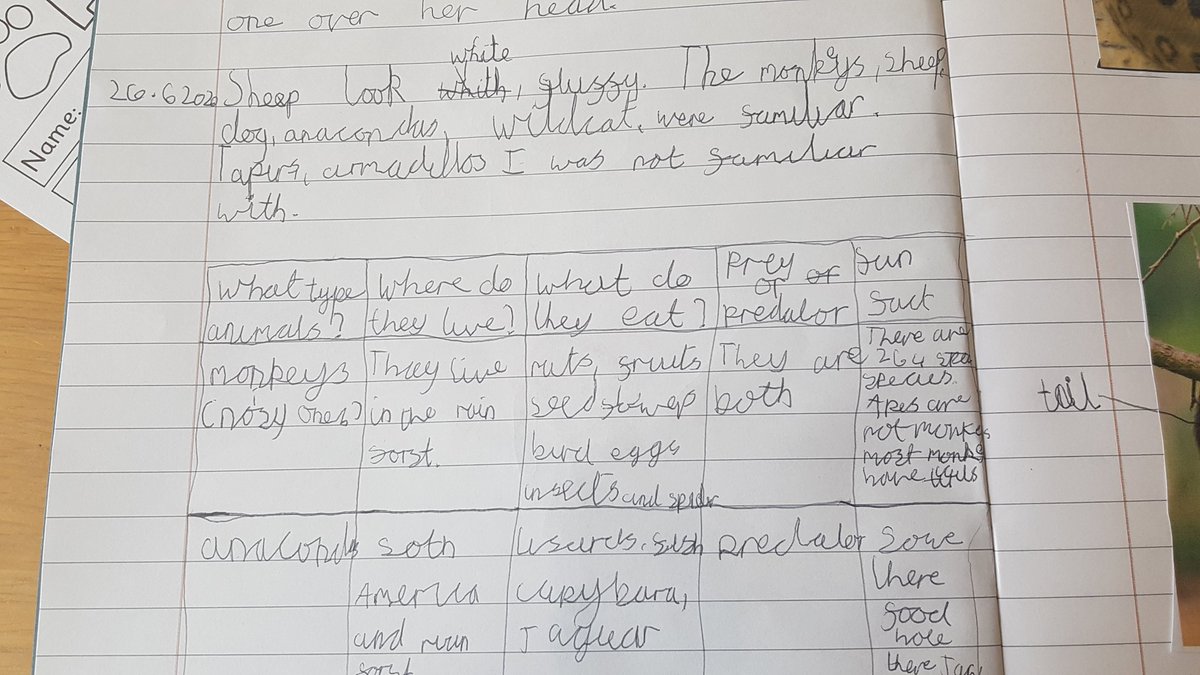 one over her head.
white
26.6 2020 Sheep look whith, fluffy. The monkeys, sheep,
dog, anacondas, wildcat, were familiar.
Tapirs, armadillos I was not familiar
with.
Name:
What type animals?
Where do they live?
What do they eat?
Prey or or predator
fun fact
monkeys (noisy ones)
They live in the rain forst.
nuts, fruits seeds bird eggs insects and spider
They are both
There are 264 species. Apes are not monkeys most monke have tails
tail
anaconda
soth America and rain forst
lisards, fish capybara, Jaguar
predator
Sowe there food hole there